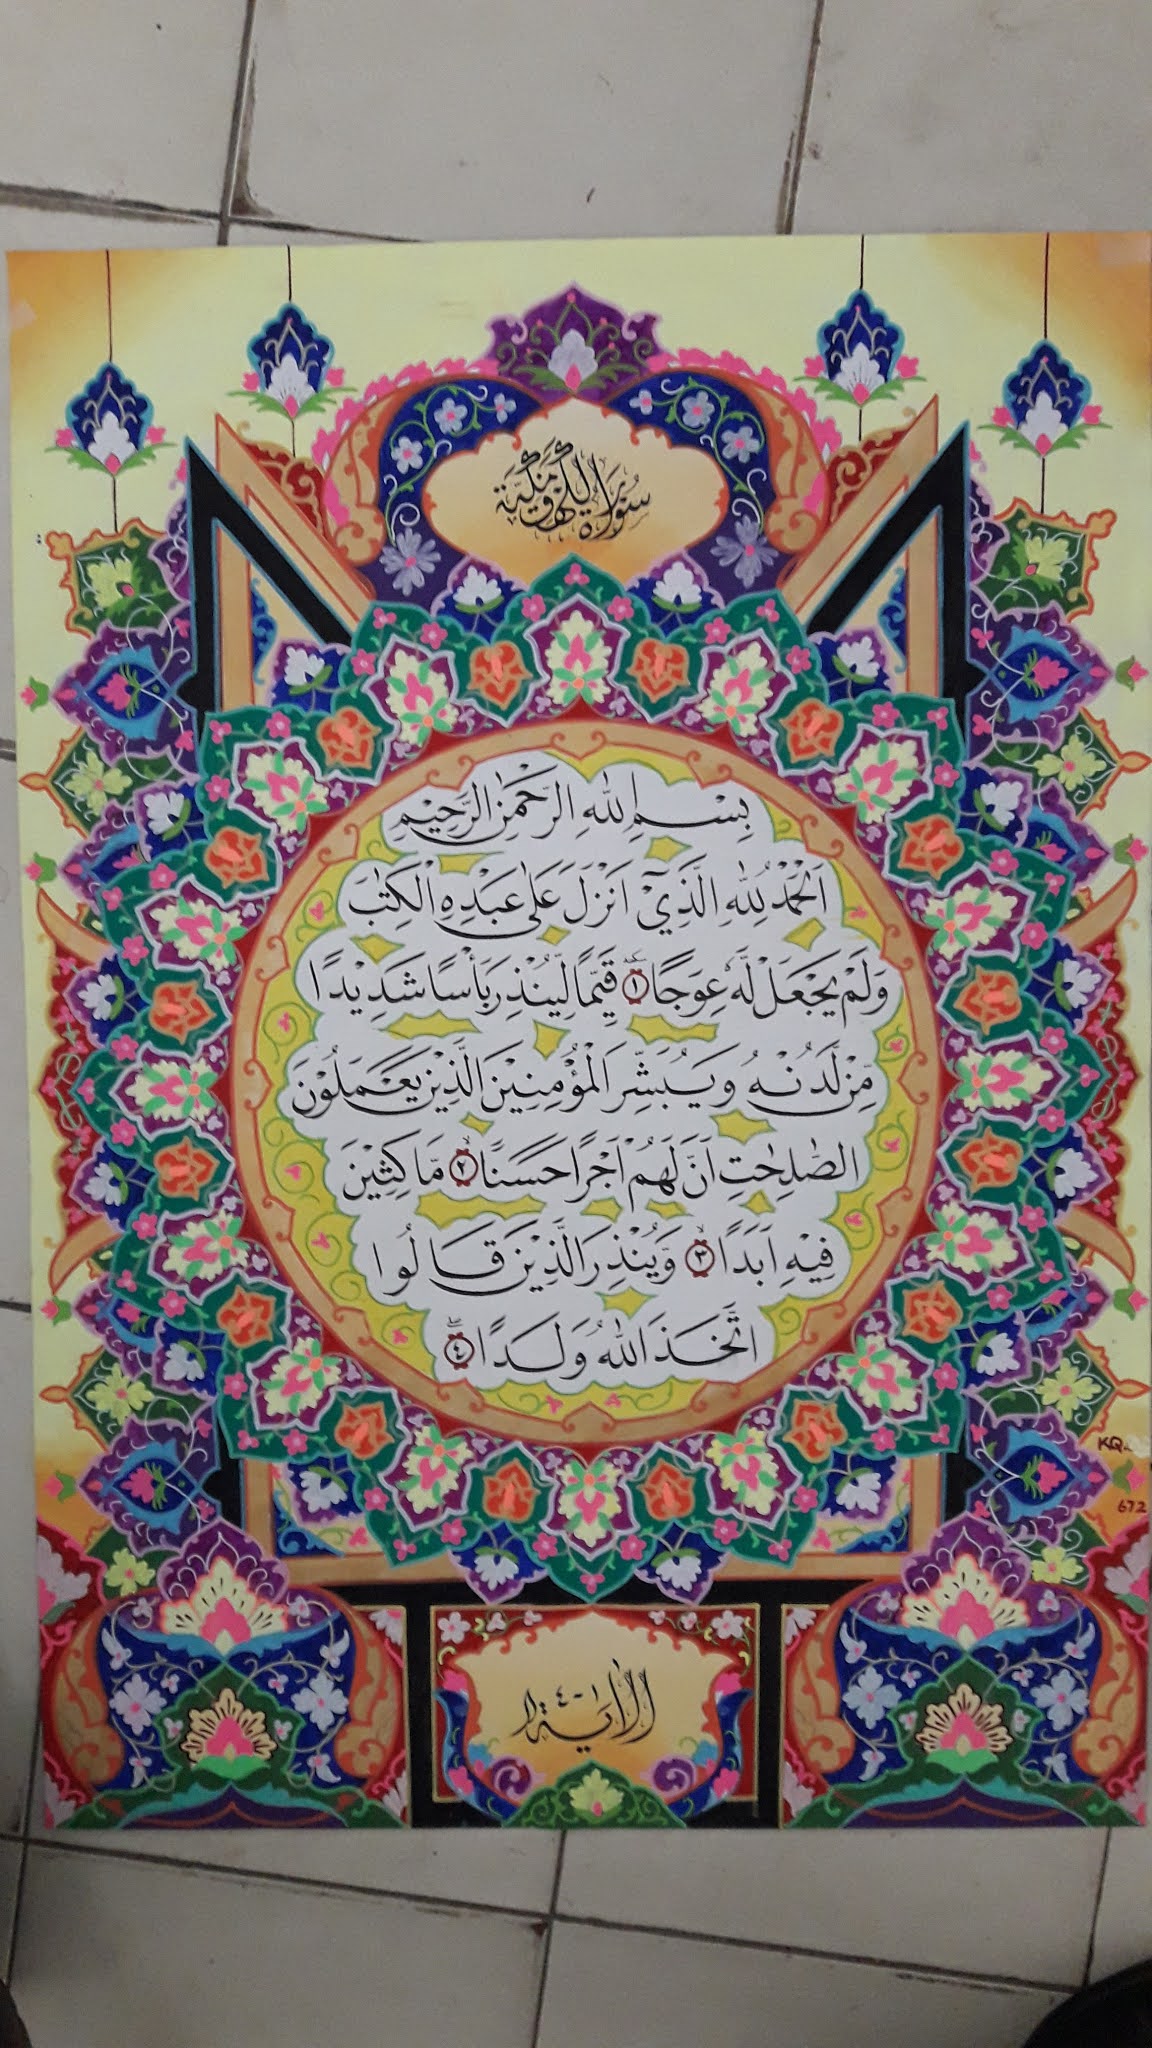 سُوْرَةُ الْكَهْفِ مَكِّيَّة
بِسْمِ اللهِ الرَّحْمٰنِ الرَّحِيْمِ
اَلْحَمْدُ لِلّٰهِ الَّذِيْٓ اَنْزَلَ عَلٰى عَبْدِهِ الْكِتٰبَ
وَلَمْ يَجْعَلْ لَّهٗ عِوَجًا ۜ ١ قَيِّمًا لِّيُنْذِرَ بَأْسًا شَدِيْدًا
مِّنْ لَّدُنْهُ وَيُبَشِّرَ الْمُؤْمِنِيْنَ الَّذِيْنَ يَعْمَلُوْنَ
الصّٰلِحٰتِ اَنَّ لَهُمْ اَجْرًا حَسَنًاۙ ٢ مَّاكِثِيْنَ
فِيْهِ اَبَدًاۙ ٣ وَّيُنْذِرَ الَّذِيْنَ قَالُوا
اتَّخَذَ اللّٰهُ وَلَدًاۖ ٤
KQ
672
الاٰية ١-٤